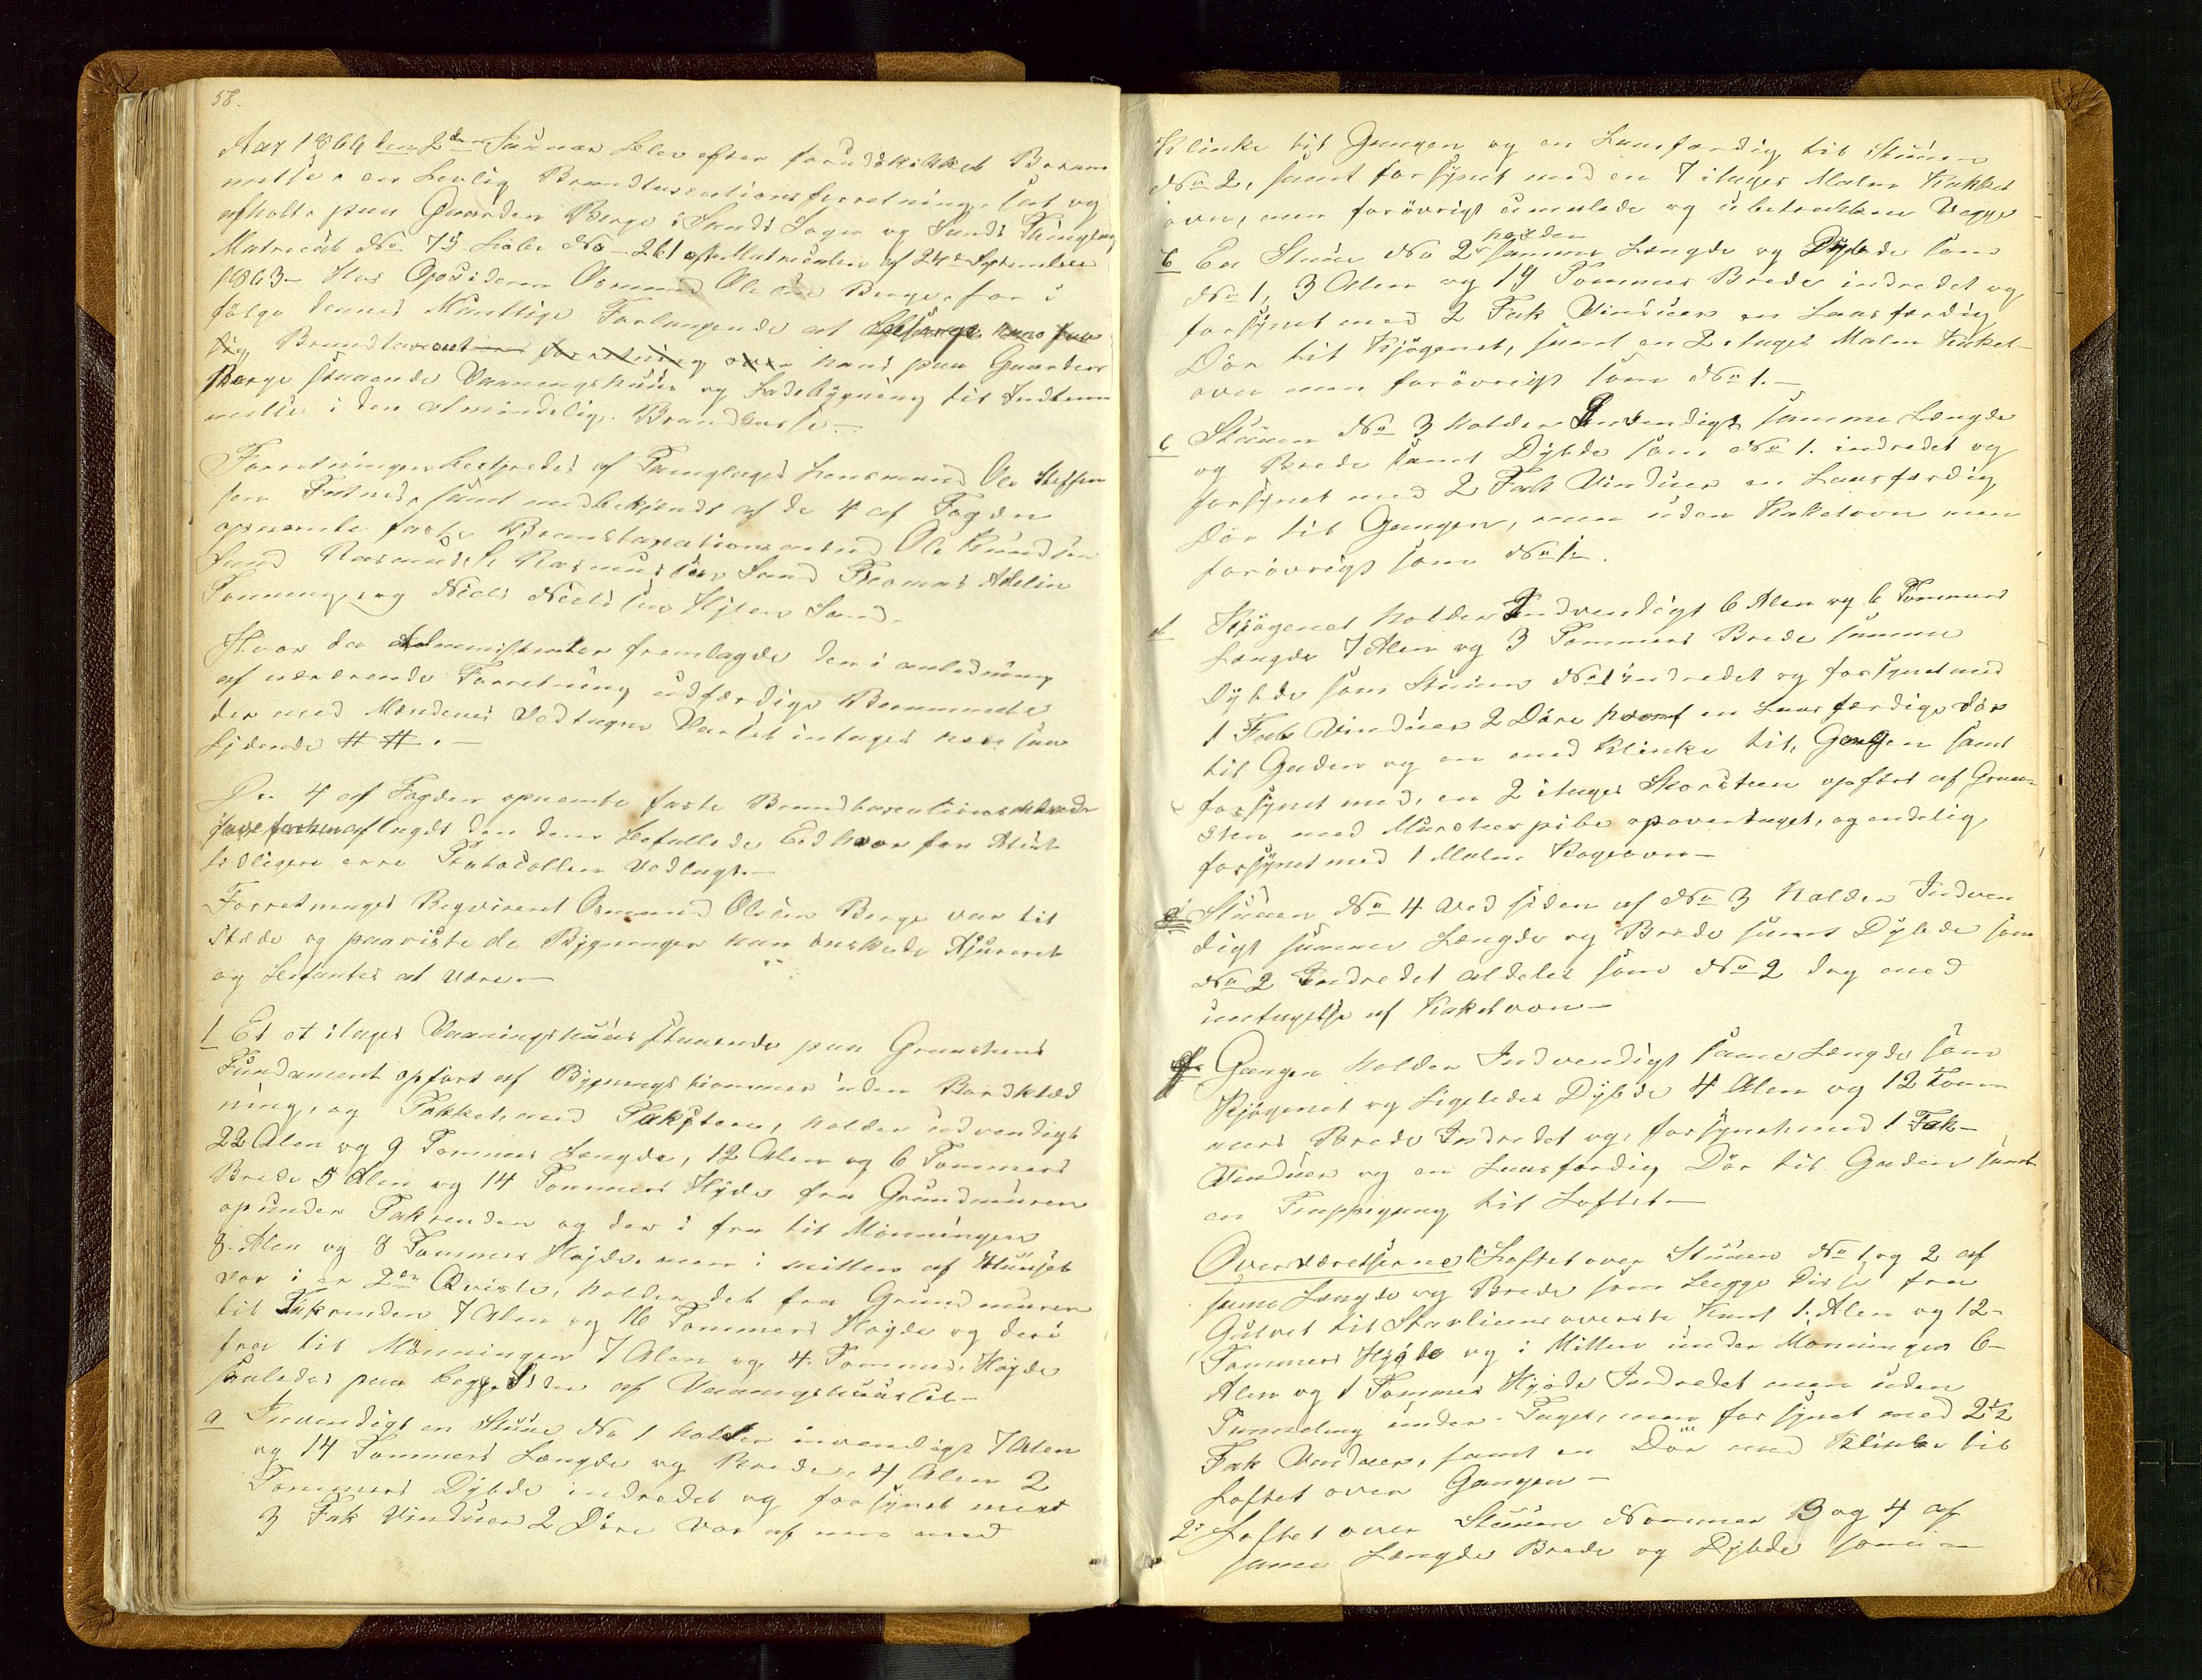 58.
Aar 1866 den 2den Januar blev efter forudskikket Beram
melse en Lovlig Brandtaxationsforretning sat og
afholt paa Gaarden Berge i Sands Sogn og Sands Thinglag
Matricul No 75 Løbe No 261 efter Matriculen af 24de September
1863 Hos Opsideren Osmund Olsen Berge, for i
følge dennes Mundtlige Forlangende at
Brandtaxations forretning over hans paa Gaarden
Berge staaende Vaaningshuus og Ladebygning til Indtem
melse i den almindelige Brandkasse —
Forretningen bestyredes af Tinglagets Lensmand Ole Steffen
sen Fatnes, samt medbekjendt af de 4 af Fogden
opnævnte faste Brandtaxationsmænd Ole Knudsen
Sand Rasmus S. Rasmussen Sand Thomas Adelin
Tonning, og Niels Nielsen Hylen Sand.
Hvor da Administrator fremlagde den i anledning
af nærværende Forretning udfærdige Berammelse
der med Mændenes Vedtagne Varsel intages her saa
Lydende # #. —
De 4 af Fogden opnævnte faste Brandtaxationsmænd
have forhen aflagdt den dem befallede Ed hvorfor Atest
tidligere ere Protocollen Vedlagt. —
Forretningens Reqvirent Osmund Olsen Berge var til
stæde og paaviste de Bygninger han ønskede Asureret
og befantes at være. —
1 Et et etages Vaaningshuus staaende paa Graasteens
Fundament opført af Bygningstømmer uden Bordklæd
ning, og Tækket med Taksteen, holder udvendigt
22 Alen og 9 Tommer Længde, 12 Alen og 6 Tommers
Brede 5 Alen og 14 Tommers Højde fra Grundmuren
op under Takrenden og der i fra til Mønningen
8. Alen og 8 Tommer Højde, men i mitten af Huuset
vor i er 2de Qviste, holder det fra Grundmuren
til Takrenden 7 Alen og 16 Tommers Højde og deri
fra til Mønningen 7 Alen og 4. Tommers Højde
saaledes paa begge Sider af Vaaningshuuset. —
a Invendigt en Stue No 1 holder invendigt 7 Alen
og 14 Tommers Længde og Brede, 4 Alen 2
Tommers Dybde indredet og forsynet med
3 Fak Vinduer 2 Døre vor af en med
Klinke til Gangen og en Laasfærdig til Stuen
No 2, samt forsynet med en 7 etages Malm Kakkel
ovn, men forøvrigt umalede og ubetrukken Vægge
b En Stue No 2 holder samme Længde og Dybde som
No 1, 3 Alen og 19 Tommer Brede indredet og
forsynet med 2 Fak Vinduer en Laasfærdig
Dør til Kjøgenet, samt en 2 etages Malm Kakel-
ovn men forøvrigt som No 1. —
c Stuen No 3 holder Indvendigt samme Længde
og Brede samt Dybde som No 1. indredet og
forsynet med 2 Fak Vinduer en Laasfærdig
Dør til Gangen, men uden Kakelovn men
forøvrigt som No 1.
d Kjøgenet holder Indvendigt 6 Alen og 6 Tommers
Længde 7 Alen og 3 Tommers Brede samme
Dybde som Stuen No 1 indredet og forsynet med
1 Fak Vinduer 2 Døre hvoraf en Laasfærdige dør
til Gaden og en med Klinke til Gangen samt
forsynet med, en 2 etages Skorsteen opført af Graa-
steen med Muurteespibe opovertaget, og endelig
forsynet med 1 Malm Kogeovn —
e Stuen No 4 ved siden af No 3 holder Indven
digt samme Længde og Brede samt Dybde som
No 2 Indredet aldeles som No 2 dog med
untagelse af Kakelovn —
f. Gangen holder Indvendigt same Længde som
Kjøgenet og Ligeledes Dybde 4 Alen og 12 Tom-
mers Brede Indredet og, forsynet med 1 Fak-
Vinduer og en Laasfærdig Dør til Gaden samt
en Trappegang til Loftet —
Oververelserne 1 Loftet over Stuen No 1 og 2 af
same Længde og Brede som begge disse fra
Gulvet til Stavlinens øverste Kant 1. Alen og 12-
Tommers Højde og i Mitten under Mønningen 6-
Alen og 1 Tommes Højde Indredet men uden
Pannelung under Taget, men forsynet med 2 1/2
Fak Vinduer, samt en Dør med Klinke til
Loftet over Gangen —
2: Loftet over Stuerne Nommer 3 og 4 af
same Længde Brede og Dybde som —